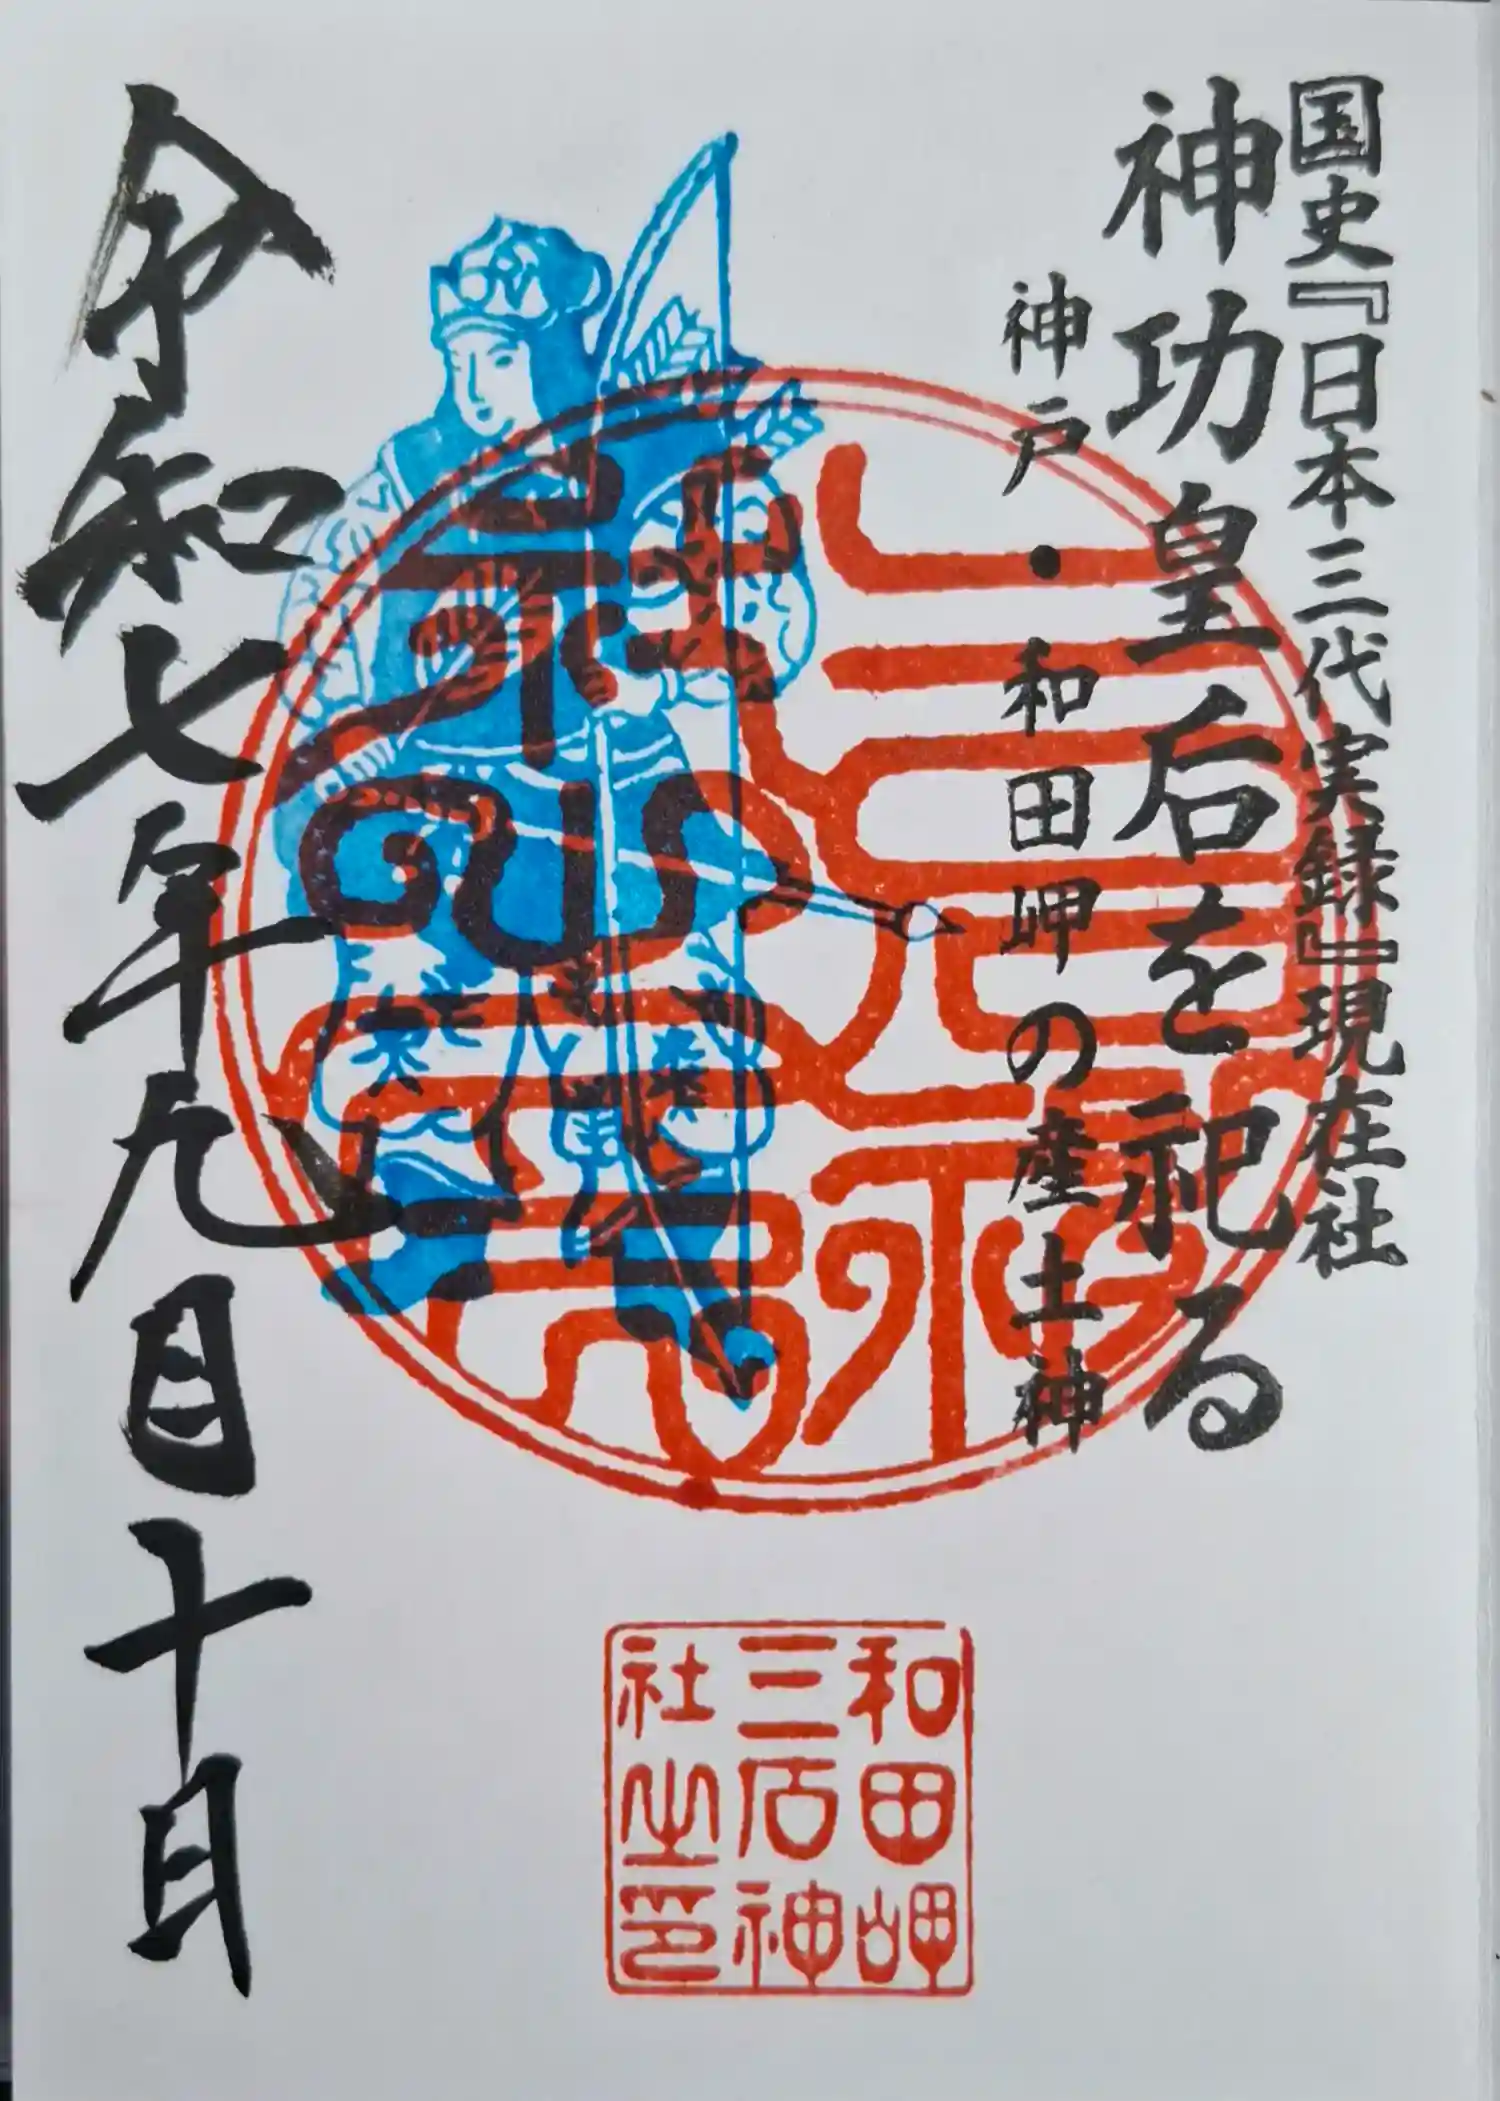 国史『日本三代実録』現在社
神功皇后を祀る
神戸・和田岬の産土神
令和七年九月十日
和田岬
三石神
社之印